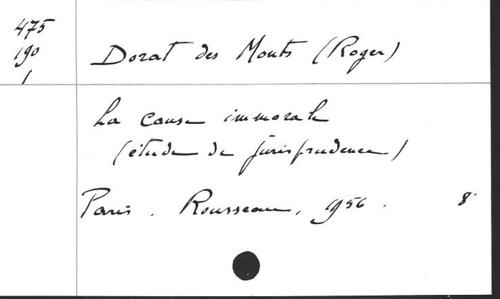 475
190
1
Dorat des Monts (Roger)
La cause immorale
(étude de jurisprudence)
Paris. Rousseau, 1956. 8°